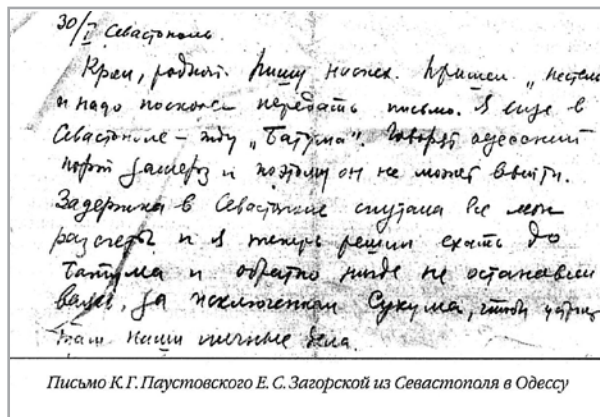 30/I Севастополь.
Крол, родной. Пишу наспех. Пришел „
и надо поскорей передать письмо. Я еще в
Севастополе – жду „Батума“. Говорят одесский
порт замерз и поэтому он не может выйти.
Задержка в Севастополе спутала все мои
расчеты и я теперь решил ехать до
Батума и обратно нигде не останавли
ваясь, за исключением Сухума, чтобы
там наши личные дела.
Письмо К. Г. Паустовского Е. С. Загорской из Севастополя в Одессу